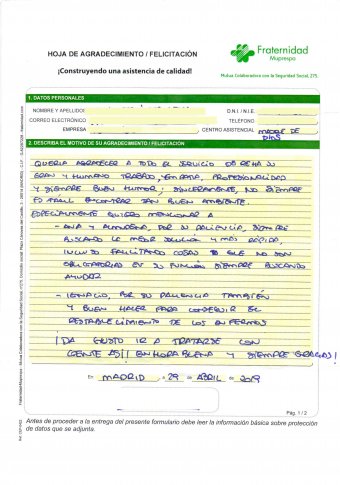 HOJA DE AGRADECIMIENTO / FELICITACIÓN
¡Construyendo una asistencia de calidad!
Fraternidad
Muprespa
Mutua Colaboradora con la Seguridad Social, 275
1. DATOS PERSONALES
NOMBRE Y APELLIDO:
D.N.I./N.I.E.
CORREO ELECTRÓNICO
TFNO.
EMPRESA
CENTRO ASISTENCIAL MADRE DE
DIOS
2. DESCRIBA EL MOTIVO DE SU AGRADECIMIENTO / FELICITACIÓN
QUERIA AGRADECER A TODO EL SERVICIO DE REHA SU
GRAN Y HUMANO TRABAJO, EMPATIA, PROFESIONALIDAD
Y SIEMPRE BUEN HUMOR; SINCERAMENTE, NO SIEMPRE
ES FÁCIL ENCONTRAR TAN BUEN AMBIENTE.
ESPECIALMENTE QUIERO MENCIONAR A
- ANA Y ALMUDENA, POR SU PACIENCIA, SIEMPRE
BUSCANDO LA MEJOR SOLUCION Y MAS RÁPIDA,
INCLUSO FACILITANDO COSAS QUE NO SON
OBLIGATORIAS EN SU FUNCION SIEMPRE BUSCANDO
AYUDAR
- IGNACIO, POR SU PACIENCIA TAMBIÉN
Y BUEN HACER PARA CONSEGUIR EL
RESTABLECIMIENTO DE LOS ENFERMOS
¡DA GUSTO IR A TRATARSE CON
GENTE ASÍ! ENHORABUENA Y SIEMPRE GRACIAS!
= MADRID, 29 = ABRIL = 2019
Pág. 1 / 2
Antes de proceder a la entrega del presente formulario debe leer la información básica sobre protección
de datos que se adjunta.